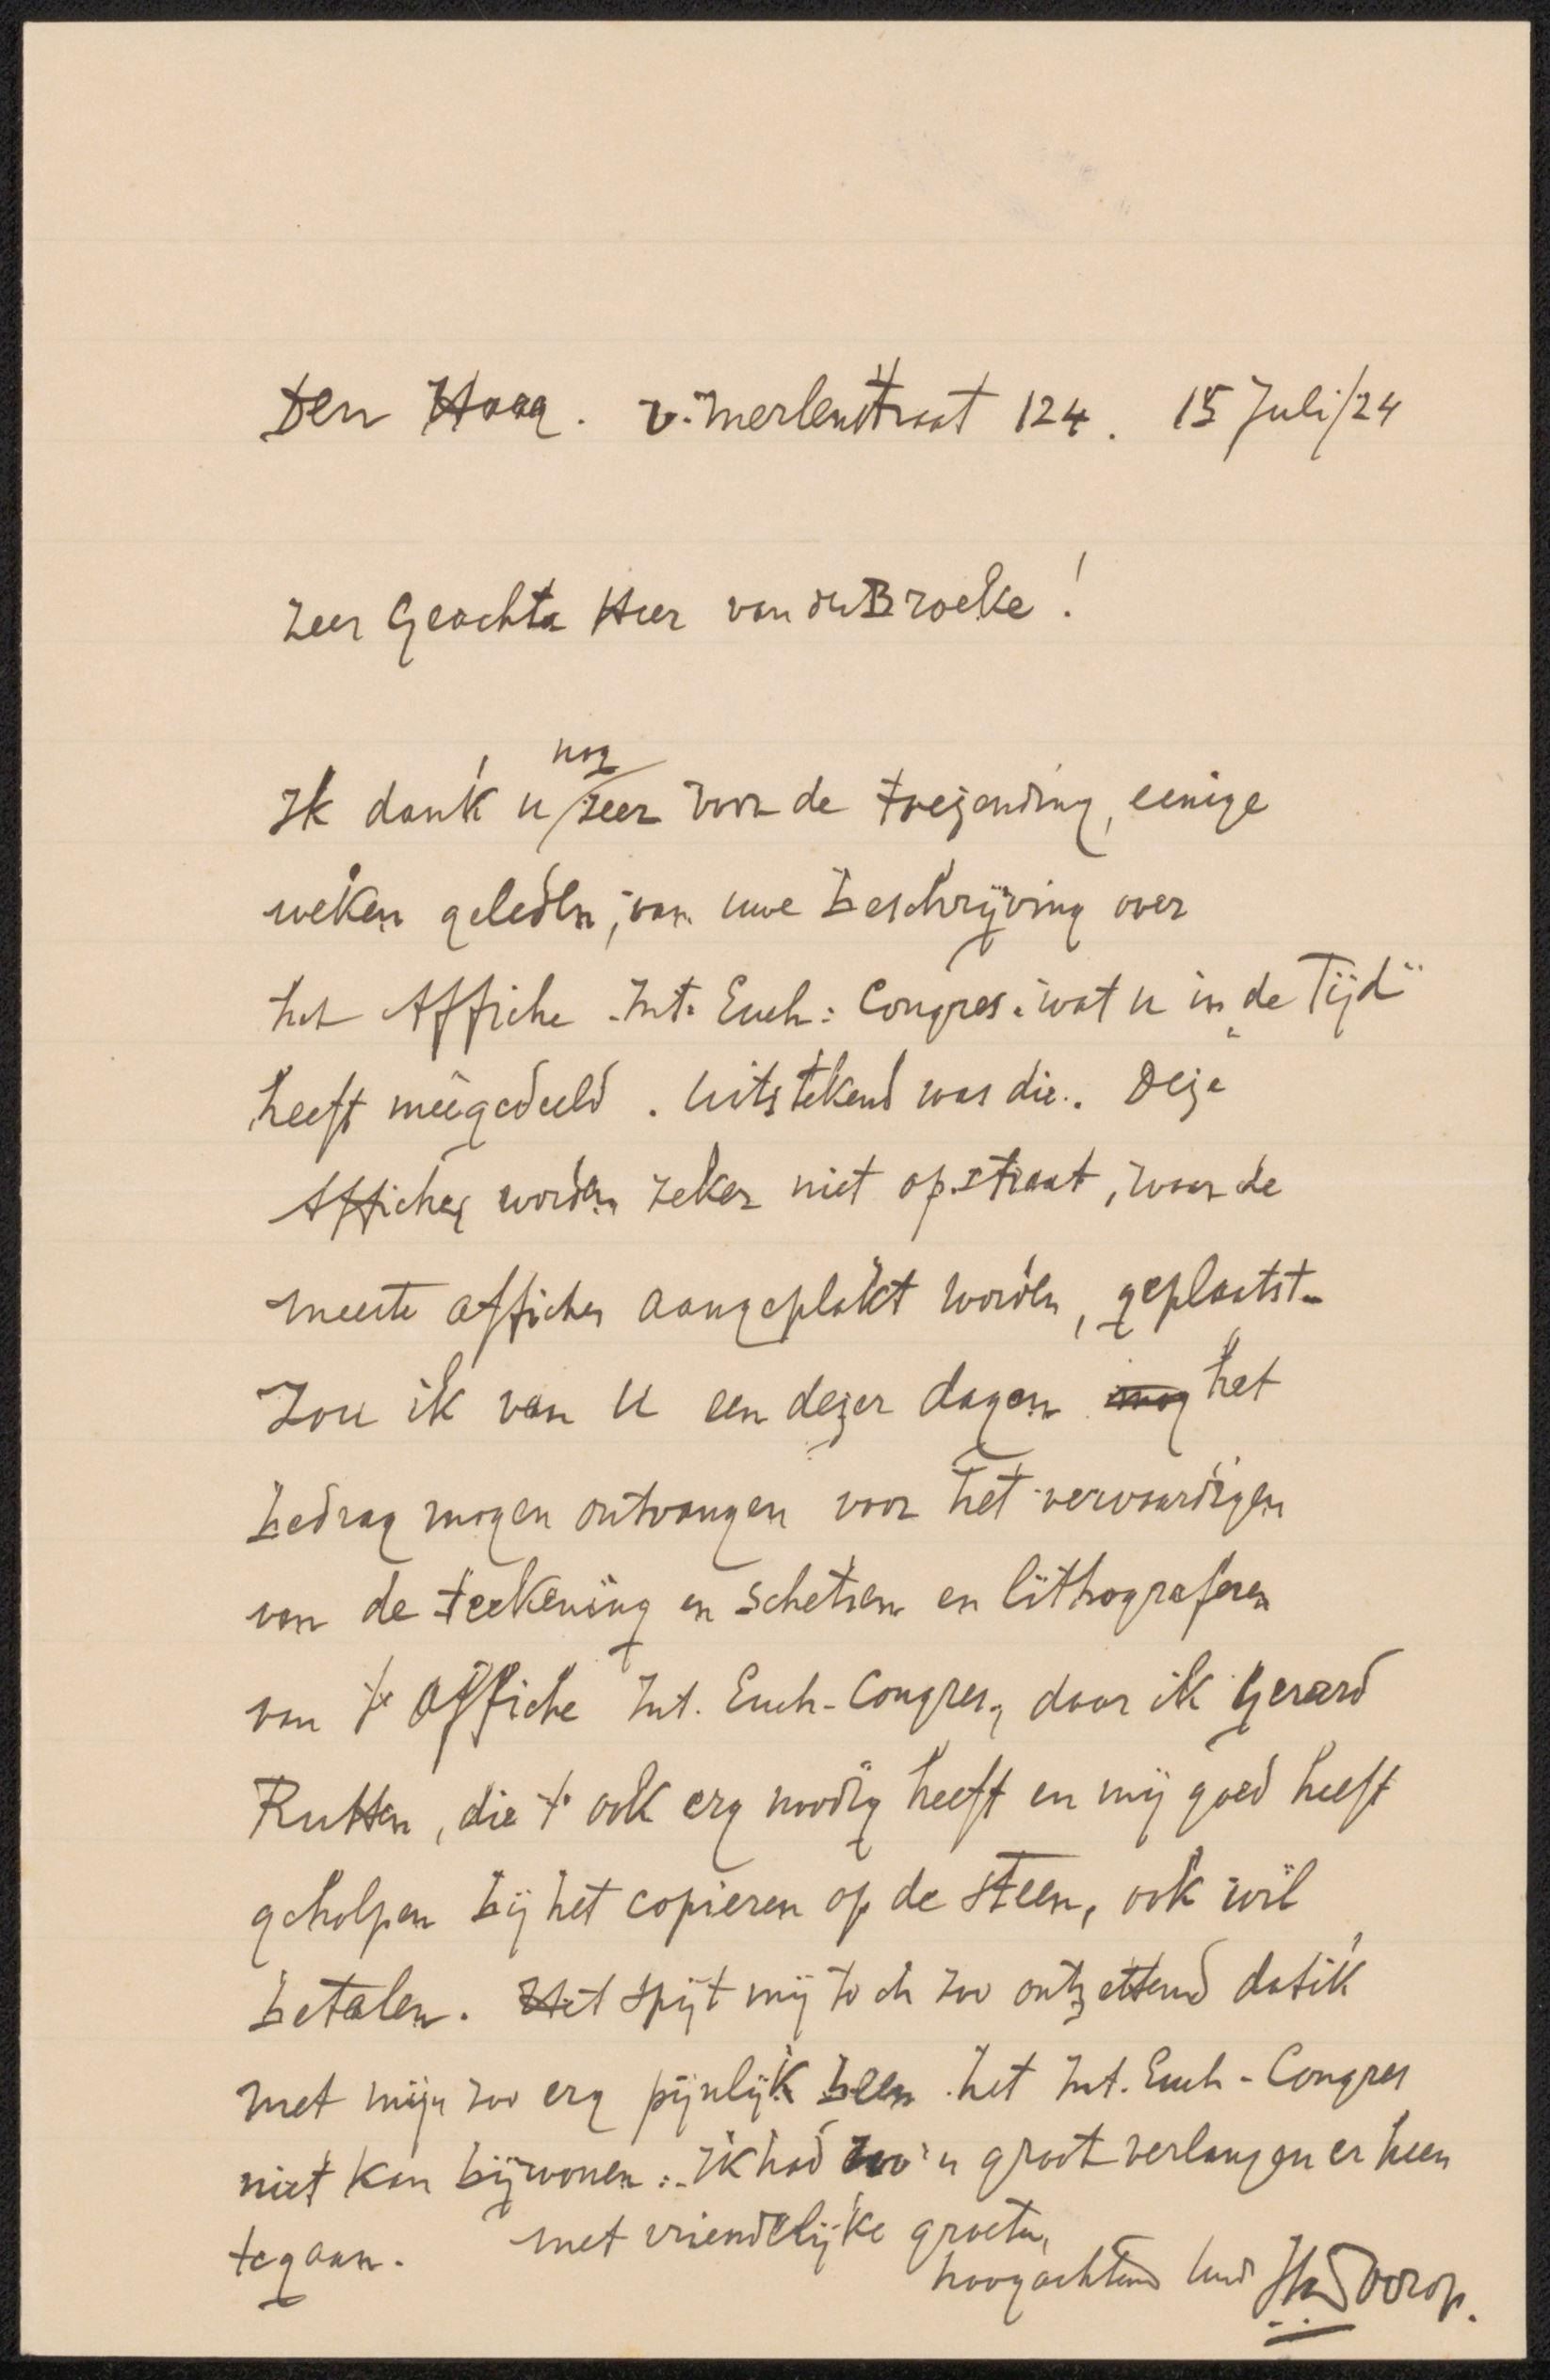 Den Haag. v. Merlenstraat 124. 15 Juli/24
Zeer Geachte Heer van den Broeke!
nog
Ik dank u zeer voor de toezending, eenige
weken geleden, van uwe beschrijving over
het Affiche Int. Euch: Congres. wat u in „de Tijd"
heeft meegedeeld. Uitstekend was die. Deze
Affiches worden zeker niet op straat, waar de
meeste affiches aangeplakt worden, geplaatst.
Zou ik van U een dezer dagen het
bedrag mogen ontvangen voor het vervaardigen
van de teekening en schetsen en lithograferen
van 't affiche Int. Euch-Congres, daar ik Gerard
Rutten, die 't ook erg noodig heeft en mij goed heeft
geholpen bij het copieren op de steen, ook wil
betalen. Het spijt mij toch zoo ontzettend dat ik
met mijn zoo erg pijnlijk been het Int. Euch-Congres
niet kan bijwonen. Ik had zoo'n groot verlangen er heen
te gaan. met vriendelijke groeten,
hoogachtend Uwd JthToorop.